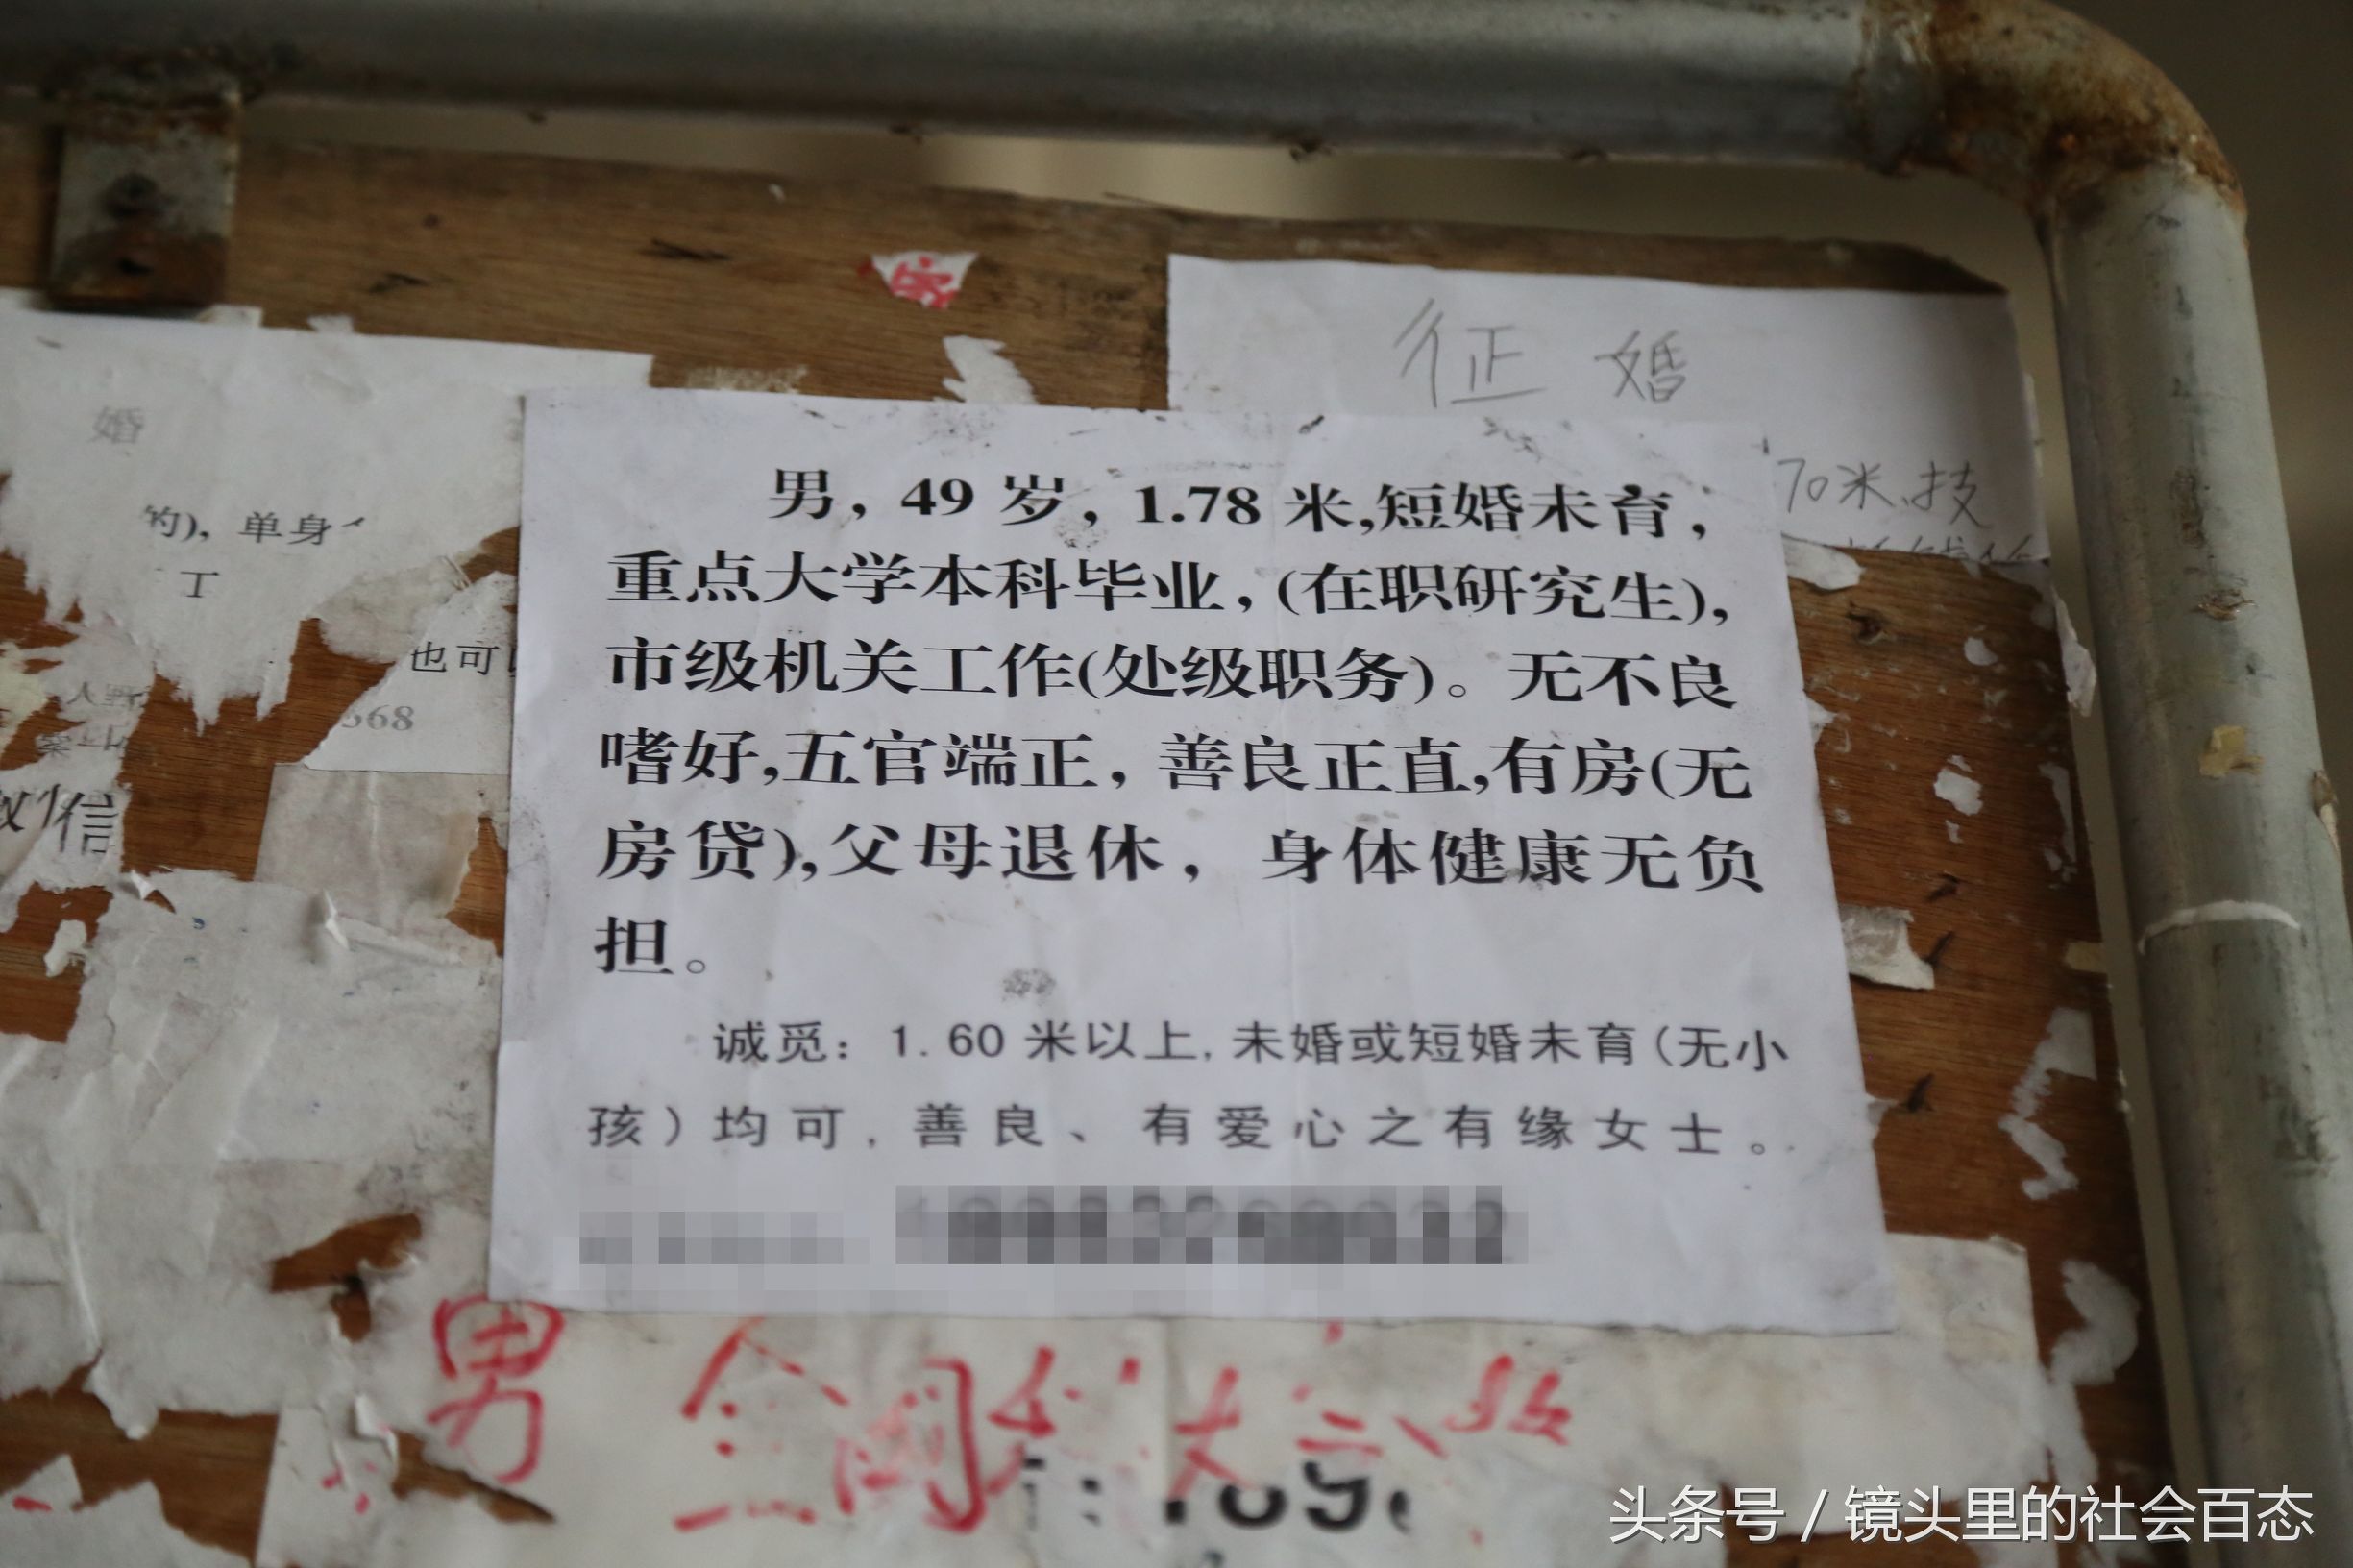 征 婚
70米、技
婚
的), 单身
工
也可以
568
信
男，49 岁，1.78 米,短婚未育，
重点大学本科毕业，(在职研究生),
市级机关工作(处级职务)。无不良
嗜好,五官端正，善良正直,有房(无
房贷),父母退休，身体健康无负
担。
诚觅：1.60 米以上,未婚或短婚未育(无小
孩)均可,善良、有爱心之有缘女士。
男
头条号 / 镜头里的社会百态